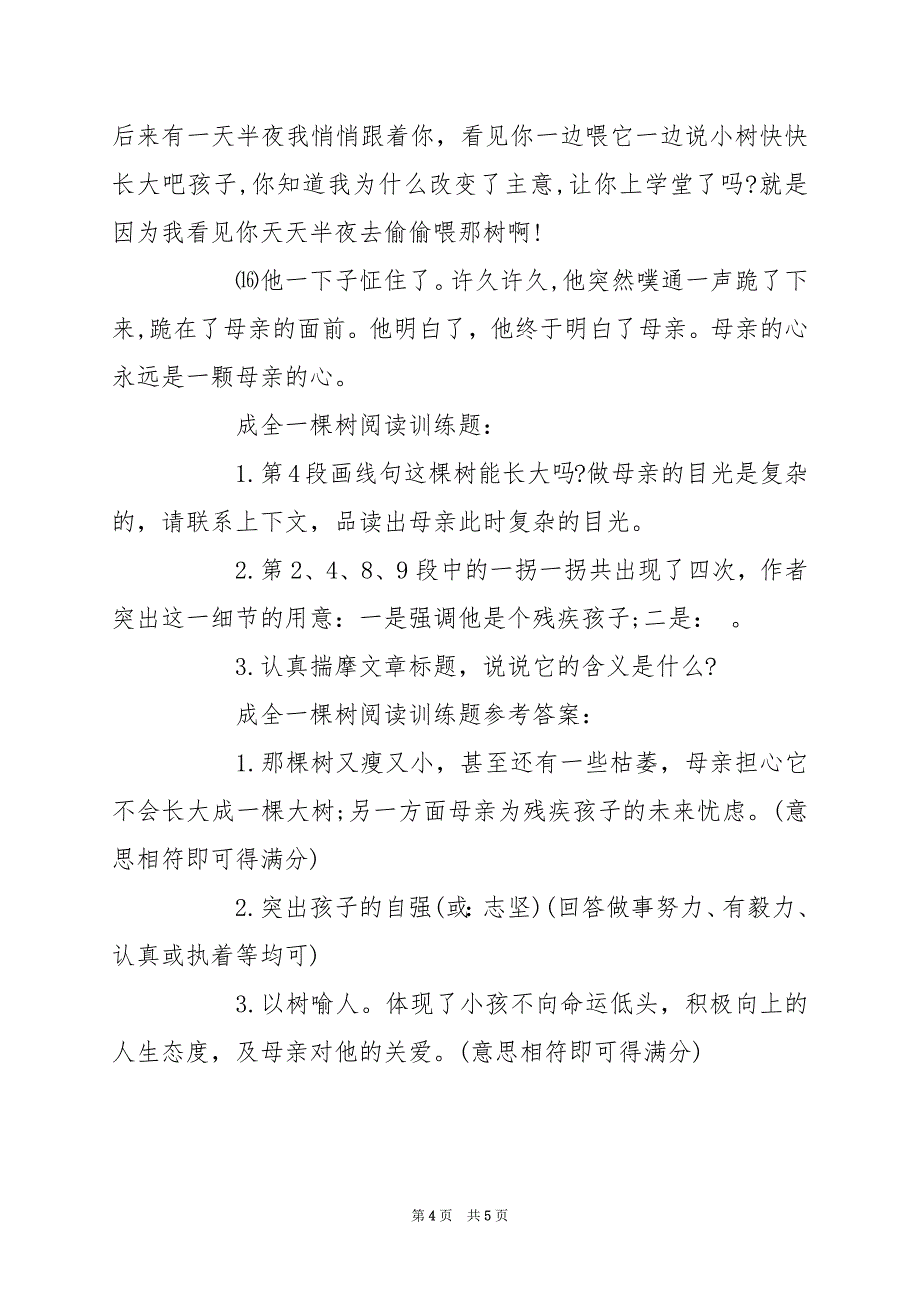 后来有一天半夜我悄悄跟着你，看见你一边喂它一边说小树快快
长大吧孩子,你知道我为什么改变了主意,让你上学堂了吗?就是
因为我看见你天天半夜去偷偷喂那树啊!
⒃他一下子怔住了。许久许久,他突然噗通一声跪了下
来,跪在了母亲的面前。他明白了，他终于明白了母亲。母亲的心
永远是一颗母亲的心。
成全一棵树阅读训练题：
1.第4段画线句这棵树能长大吗?做母亲的目光是复杂
的，请联系上下文，品读出母亲此时复杂的目光。
2.第2、4、8、9段中的一拐一拐共出现了四次，作者
突出这一细节的用意：一是强调他是个残疾孩子;二是： 。
3.认真揣摩文章标题，说说它的含义是什么?
成全一棵树阅读训练题参考答案：
1.那棵树又瘦又小，甚至还有一些枯萎，母亲担心它
不会长大成一棵大树;另一方面母亲为残疾孩子的未来忧虑。(意
思相符即可得满分)
2.突出孩子的自强(或：志坚)(回答做事努力、有毅力、
认真或执着等均可)
3.以树喻人。体现了小孩不向命运低头，积极向上的
人生态度，及母亲对他的关爱。(意思相符即可得满分)
第4页 共5页